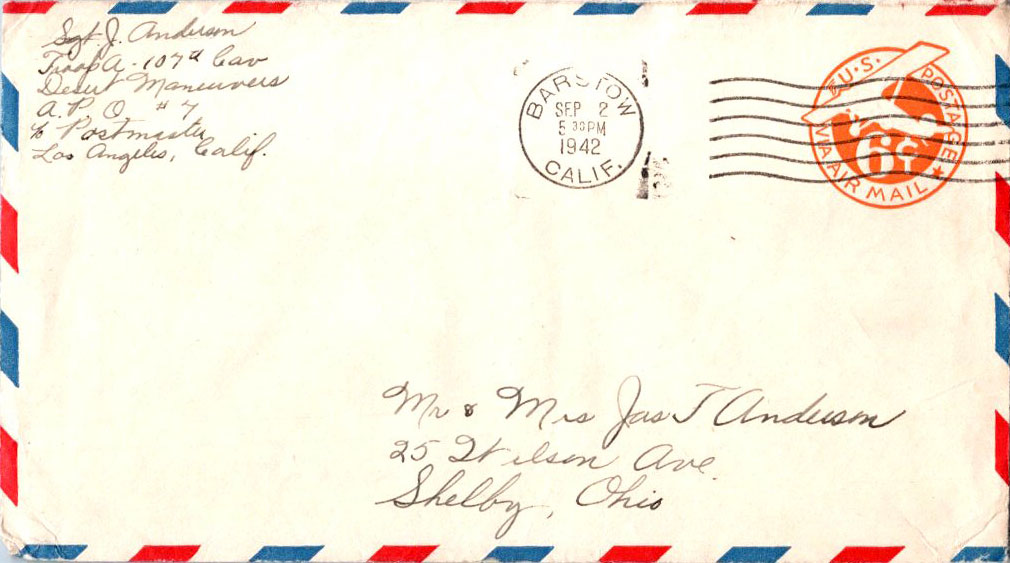 Sgt. J. Anderson
Troop A - 107th Cav
Desert Maneuvers
A. P. O. # 7
c/o Postmaster
Los Angeles, Calif.
BARSTOW
SEP 2
5 30 PM
1942
CALIF.
U.S. POSTAGE
6¢
VIA AIR MAIL
Mr & Mrs Jas T Anderson
25 Wilson Ave.
Shelby, Ohio